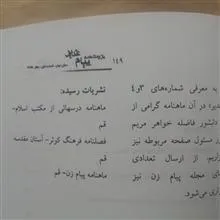 ۱۴۹
پیام
نشریات رسیده:
ماهنامه درسهائی از مکتب اسلام-
قم
فصلنامه فرهنگ کوثر- آستان مقدسه
قم
ماهنامه پیام زن- قم
به معرفی شماره‌های ۳و۴
در آن ماهنامه گرامی از
دانشور فاضله خواهر مریم
مسئول صفحه مربوطه نیز
از ارسال تعدادی
مجله پیام زن نیز
می‌شود.